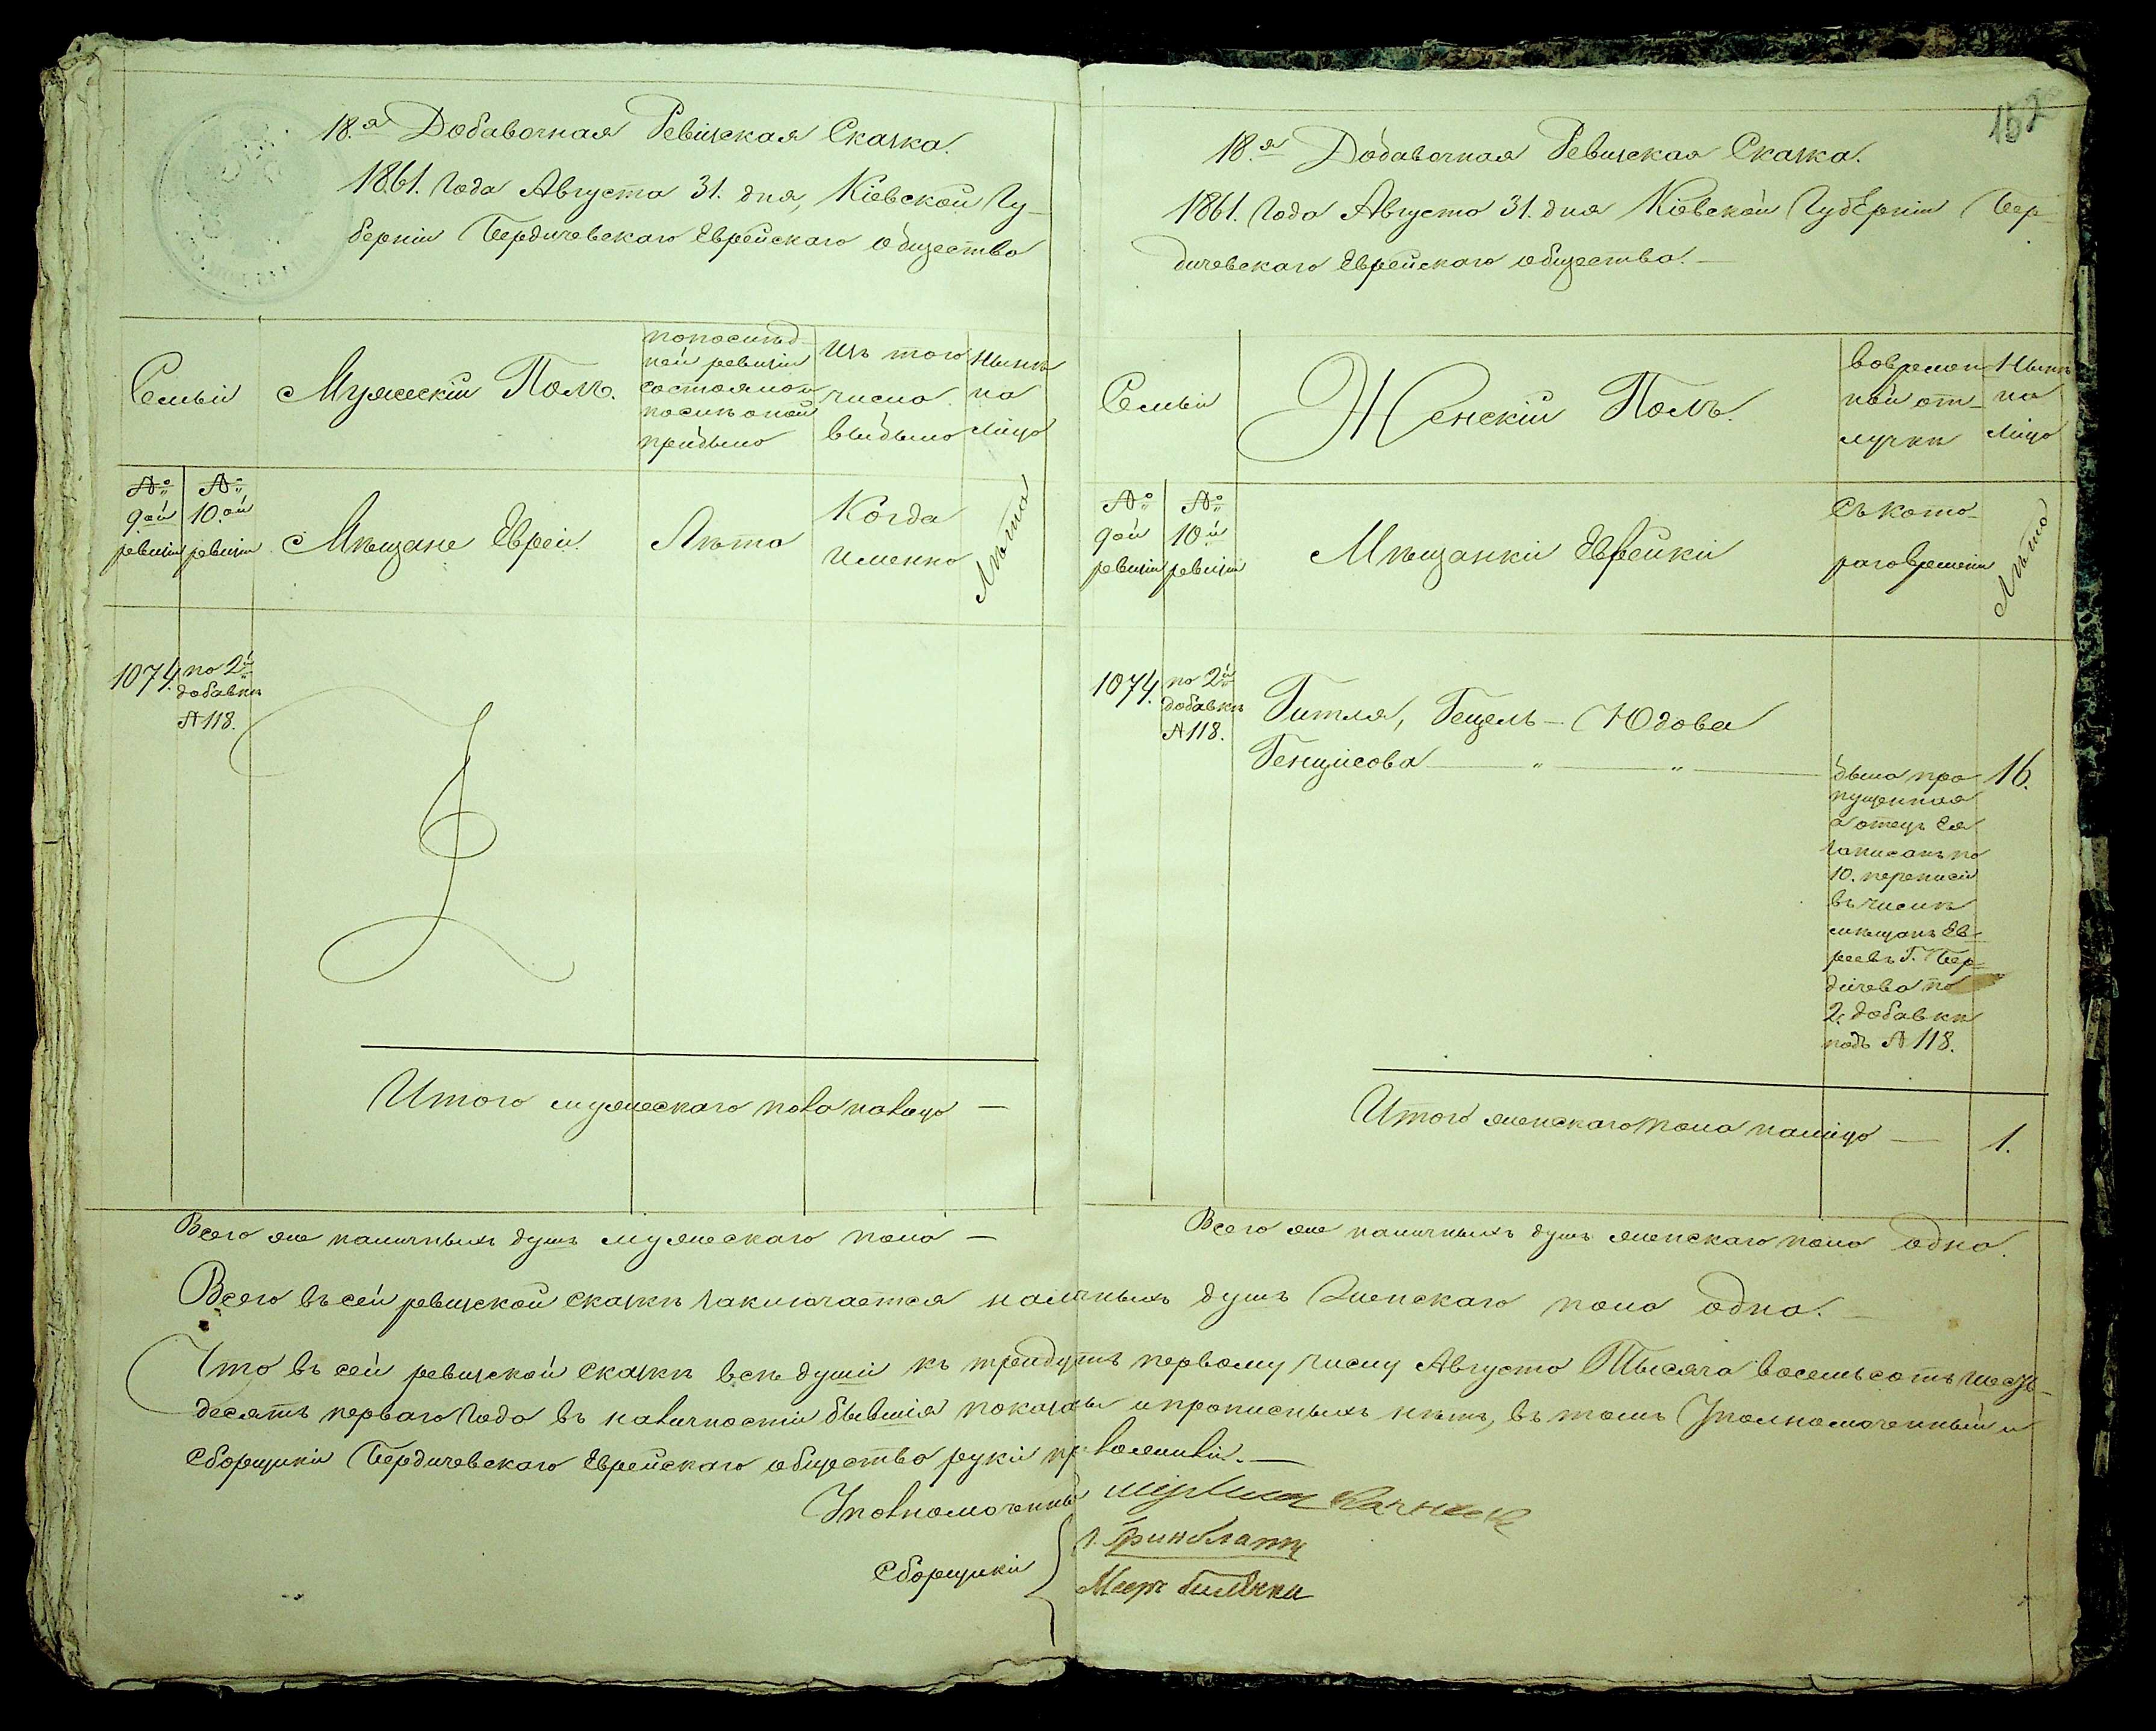 18.я Добавочная Ревизская Сказка.
1861. года Августа 31. дня, Кіевской Гу-
берніи Бердичевскаго Еврейскаго общества
Семьи
Мужескій Полъ.
попослѣд-
ней ревизіи
состояло и
послѣ оной
прибыло
Изъ того
числа
выбыло
Нынѣ
на
лицо
№ 9ой ревизіи
№ 10.ой ревизіи
Мѣщане Евреи
Лѣта
Когда
именно
Лѣта
1074.
по 2й
добавкѣ
№ 118.
Итого мужескаго пола налицо —
Всего же наличныхъ душъ мужескаго пола —
152
18.я Добавочная Ревизская Сказка.
1861. Года Августа 31. дня Кіевской Губерніи Бер-
дичевскаго Еврейскаго общества. —
Семьи
Женскій Полъ.
вовремен-
ной от-
лучкѣ
Нынѣ
на
лицо
№ 9ой ревизіи
№ 10.й ревизіи
Мѣщанки Еврейки
Съ кото-
раго времени
Лѣта
1074.
по 2й
добавкѣ
№ 118.
Гитля, Гецель - Юдова
16.
была про-
пущенная
а отецъ Ея
записанъ по
10. переписи
въ числѣ
мѣщанъ Ев-
реевъ Г. Бер-
дичева по
2. добавкѣ
подъ № 118.
Итого женскаго пола налицо — 1.
Всего же наличныхъ душъ женскаго пола одна.
Всего въ сей ревизской сказкѣ заключается наличныхъ душъ женскаго пола одна. —
Что въ сей ревизской сказкѣ всѣ души къ тридцать первому числу Августа Тысяча восемьсотъ шесть-
десятъ перваго Года въ наличности бывшія показаны и прописныхъ нѣтъ, въ томъ Уполномоченный и
Сборщики Бердичевскаго Еврейскаго общества руки приложили. —
Уполномоченный
Сборщики
Гринблатъ
Меер